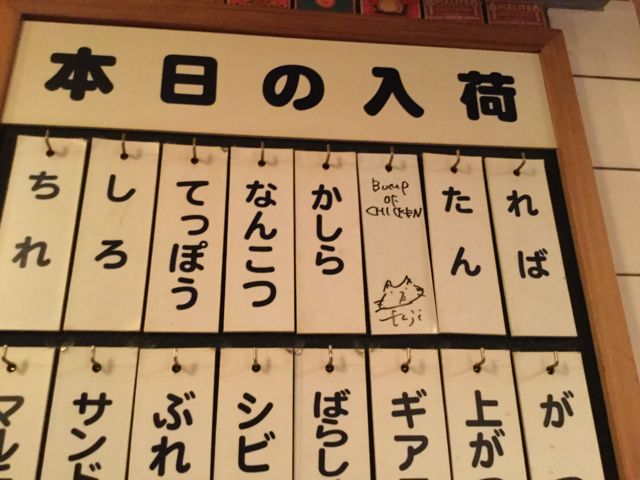 本日の入荷
ちれ
しろ
てっぽう
なんこつ
かしら
BUMP
OF
CHICKEN
fuji
たん
れば
サンド
ぶれ
シビ
ばらし
ギア
上が
が